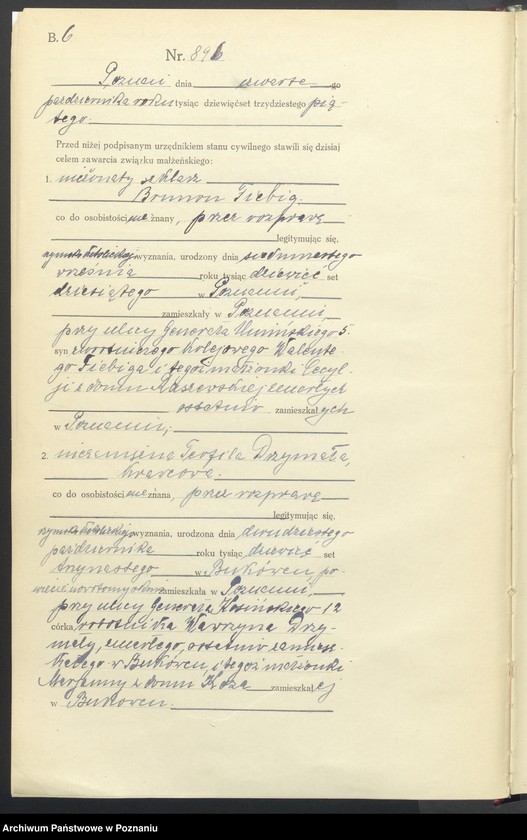 B. 6
Nr. 896
Poznań dnia czwarte go
października roku tysiąc dziewięćset trzydziestego pią-
tego.
Przed niżej podpisanym urzędnikiem stanu cywilnego stawili się dzisiaj
celem zawarcia związku małżeńskiego:
1. nieżonaty szklarz
Brunon Fiebig.
co do osobistości nie znany, przez rozprawę
legitymując się,
rzymsko katolickiej wyznania, urodzony dnia siedemnastego
września roku tysiąc dziewięć set
dziesiątego w Poznaniu,
zamieszkały w Poznaniu,
przy ulicy Generała Umińskiego 5
syn zwrotniczego kolejowego Walente-
go Fiebiga i tegoż małżonki Cecyl-
ji z domu Raszewskiej zmarłych
ostatnio zamieszkałych
w Poznaniu,
2. niezamężna Teofila Drzymała,
krawcowa.
co do osobistości nie znana, przez rozprawę
legitymując się,
rzymsko katolickiej wyznania, urodzona dnia dwudziestego
października roku tysiąc dziewięć set
trzynastego w Bukówcu, po-
wiecie nowotomyskim zamieszkała w Poznaniu,
przy ulicy Generała Kosińskiego 12
córka robotnika Wawrzyna Drzy-
mały, zmarłego, ostatnio zamiesz-
kałego w Bukówcu, i tegoż małżonki
Marjanny z domu Koza zamieszkałej
w Bukówcu.
Archiwum Państwowe w Poznaniu